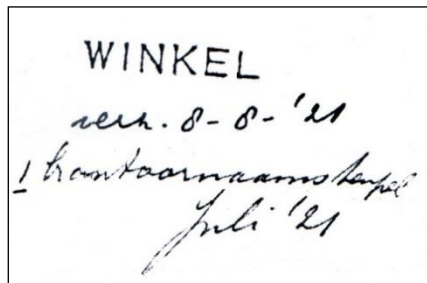 WINKEL
verz. 8-8-'21
1 kantoornaamstempel
Juli '21